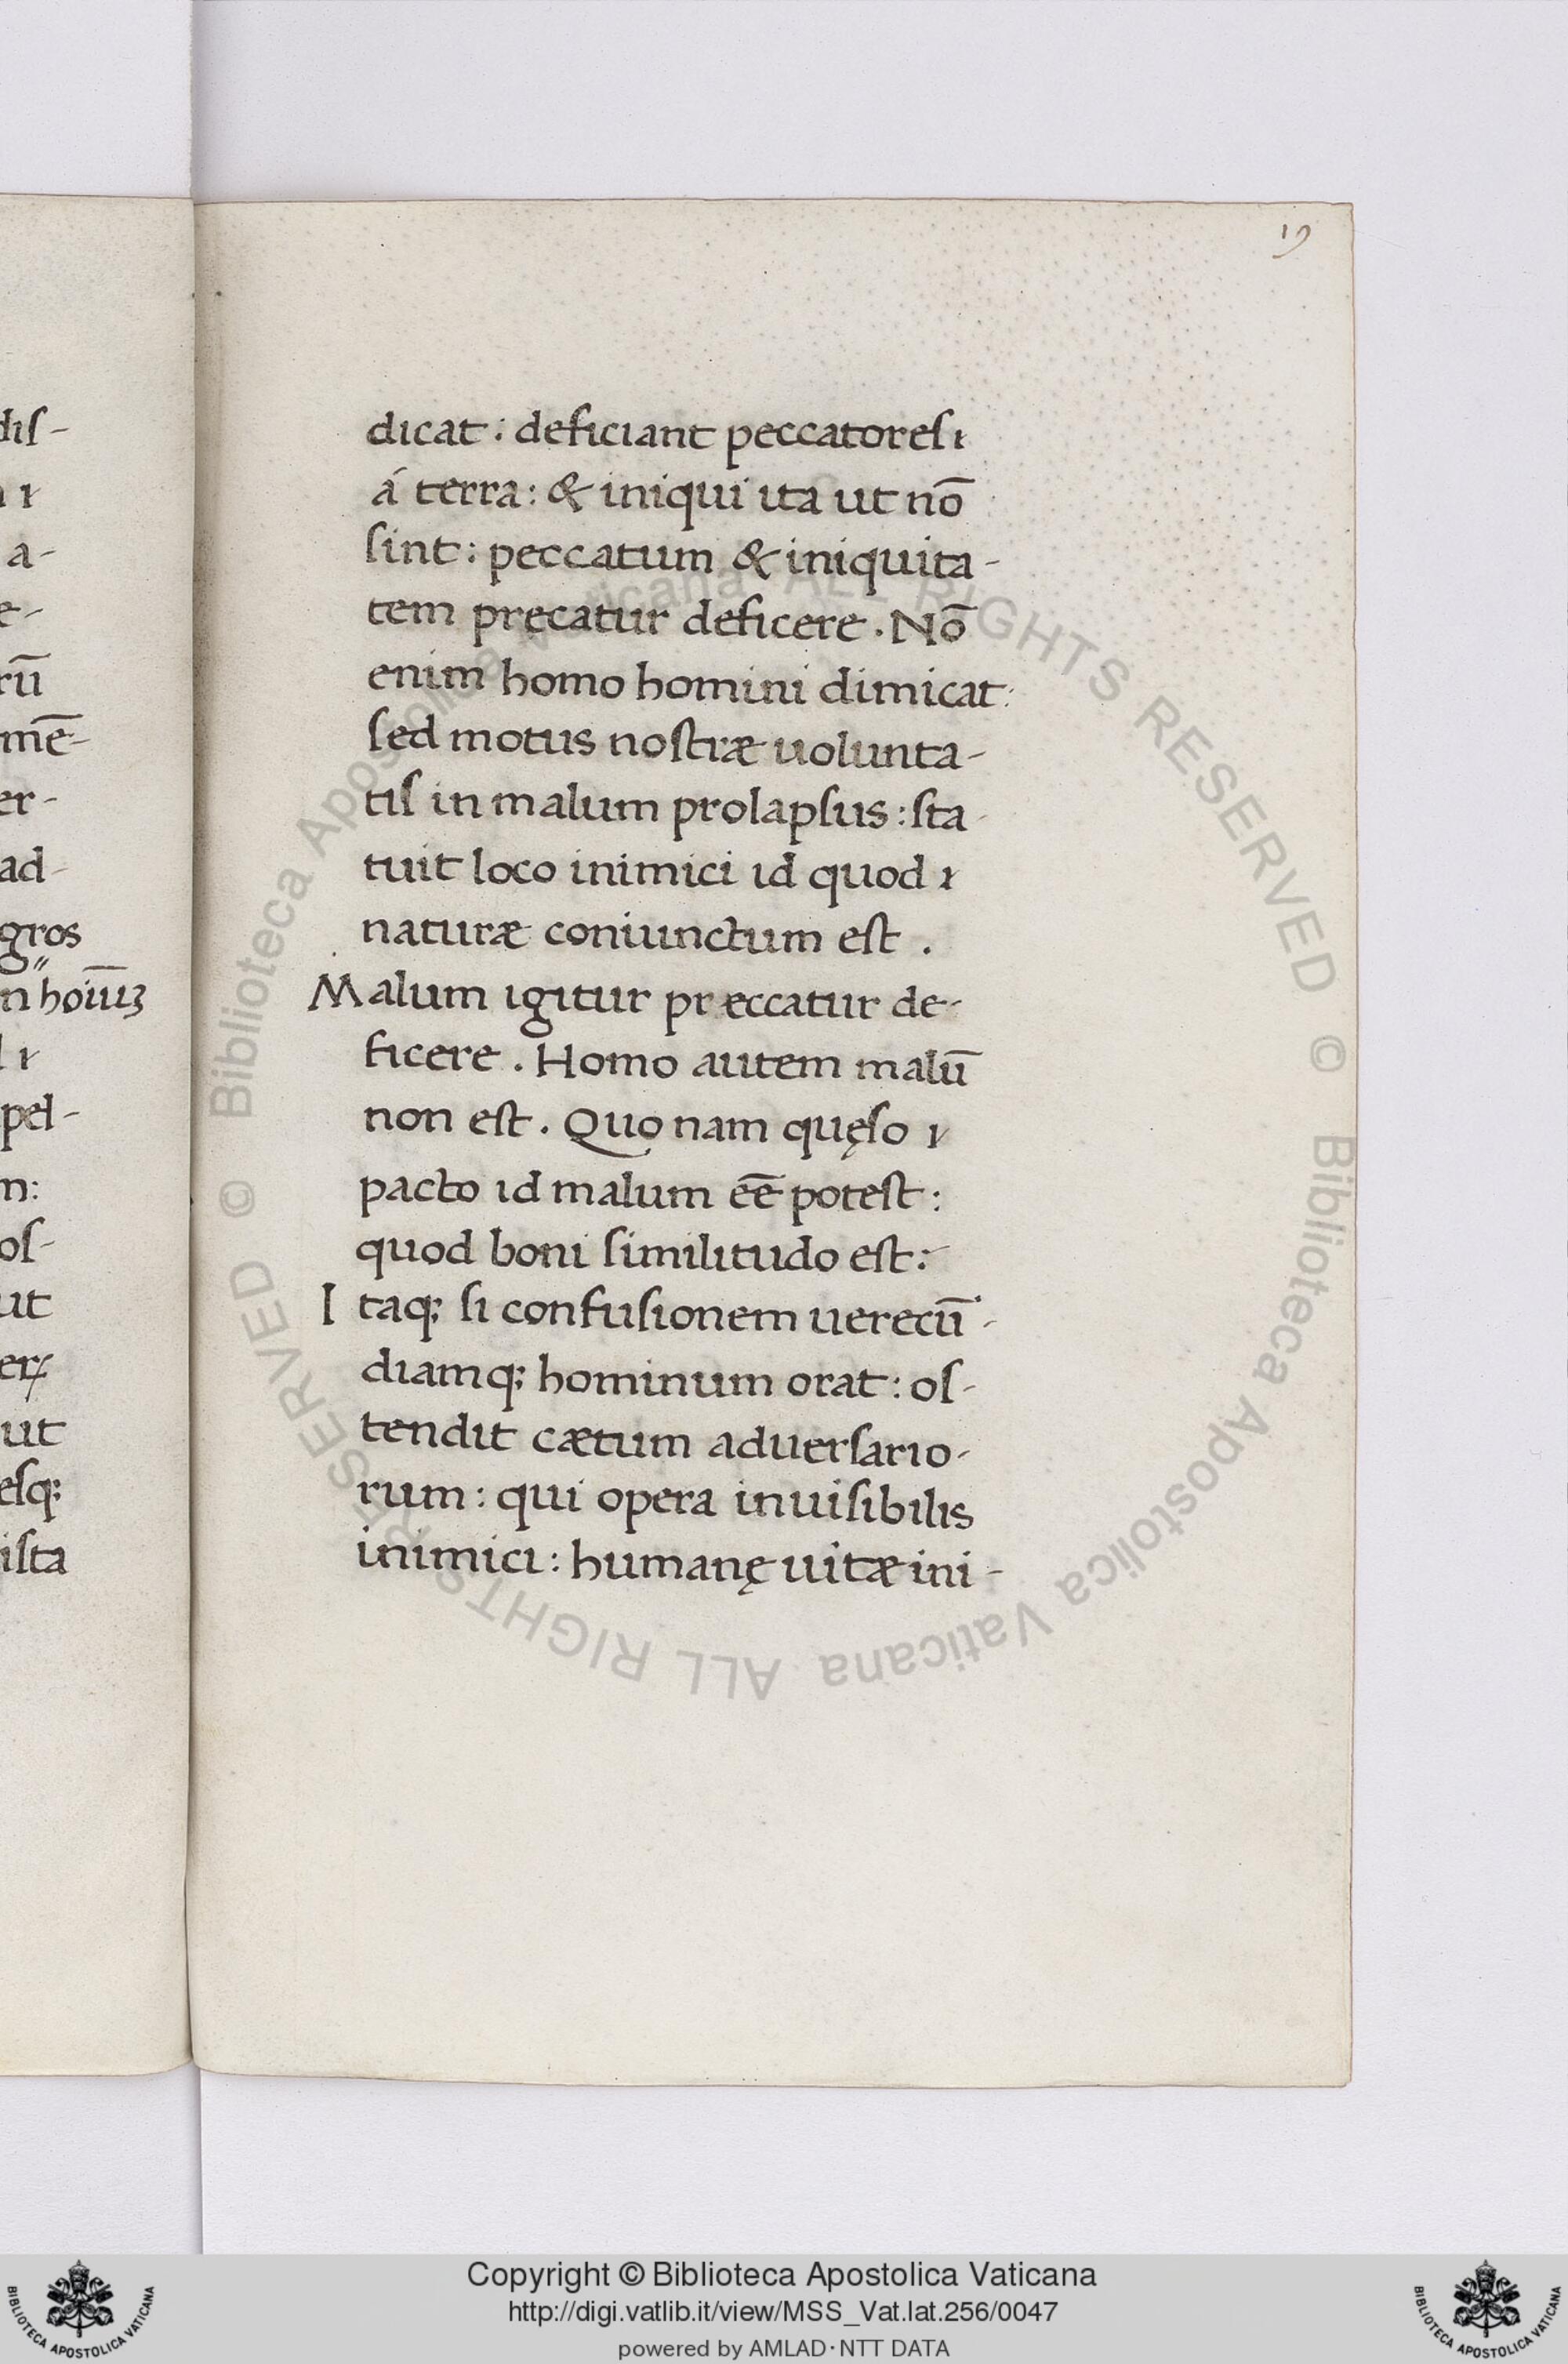 19
dis-
ı
a-
e-
rū
mē-
er-
ad-
gros
n hoıū3
ı
pel-
n:
os-
ut
erꝝ
ut
esq;
ista
dicat: deficiant peccatores ı
á terra: & iniqui ita ut nō
sint: peccatum & iniquita-
tem precatur deficere. Nō
enim homo homini dimicat:
sed motus nostræ uolunta-
tis in malum prolapsus: sta-
tuit loco inimici id quod ı
naturæ coniunctum est.
Malum igitur preccatur de-
ficere. Homo autem malū
non est. Quo nam quęso ı
pacto id malum eē potest:
quod boni similitudo est:
Itaq; si confusionem uerecū-
diamq; hominum orat: os-
tendit cætum aduersario-
rum: qui opera inuisibilis
inimici: humanę uitæ ini-
© Biblioteca Apostolica Vaticana ALL RIGHTS RESERVED © Biblioteca Apostolica Vaticana ALL RIGHTS RESERVED
Copyright © Biblioteca Apostolica Vaticana
http://digi.vatlib.it/view/MSS_Vat.lat.256/0047
powered by AMLAD·NTT DATA
BIBLIOTECA APOSTOLICA VATICANA
BIBLIOTECA APOSTOLICA VATICANA